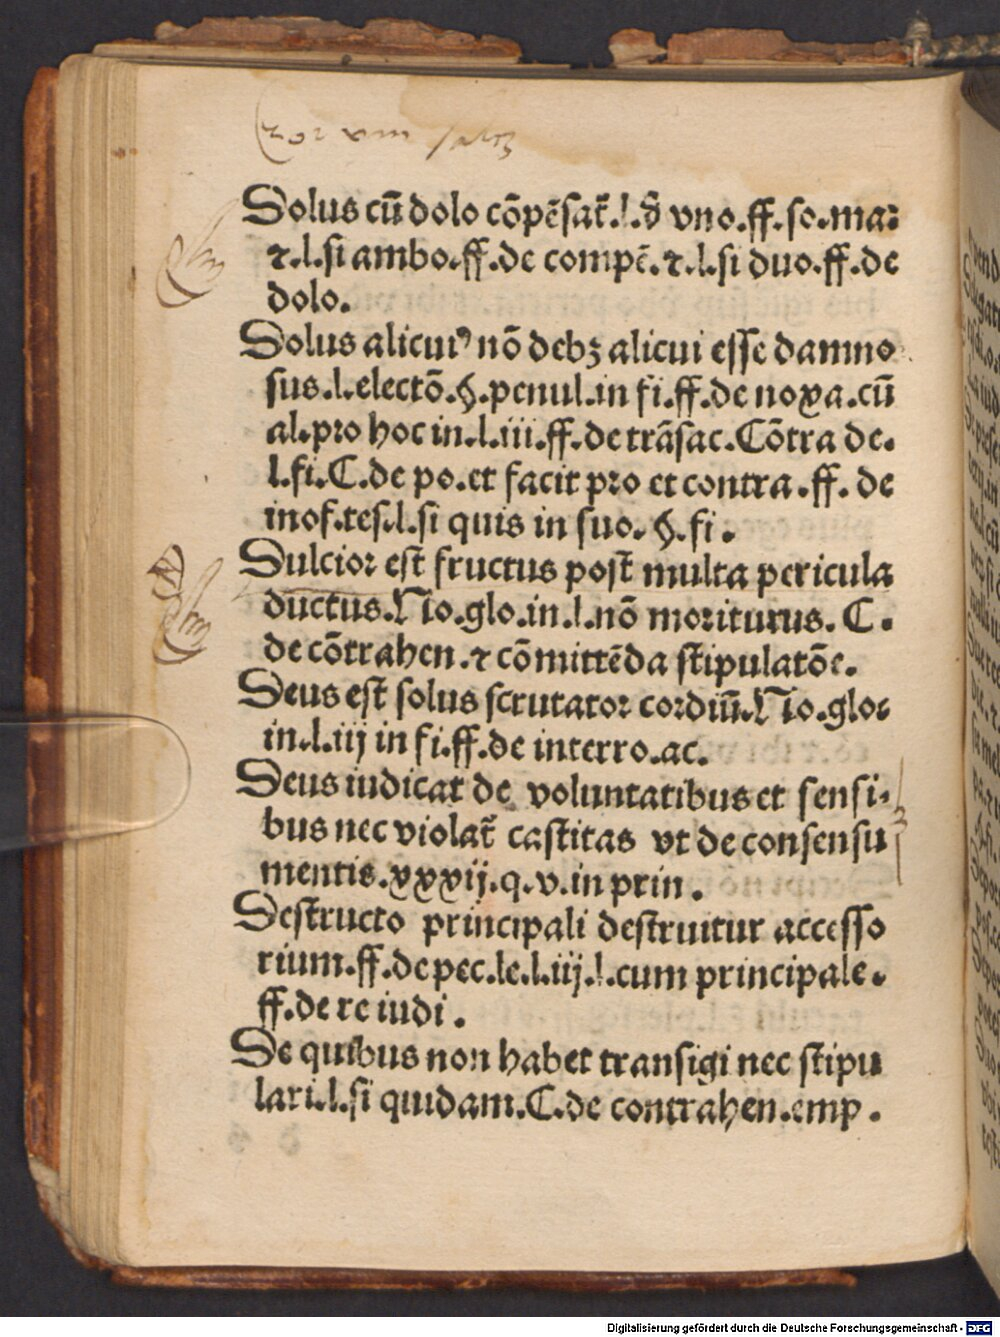 Dolus cū dolo cōpēsat̃.l.ð vno.ff.so.maꝛ
⁊.l.si ambo.ff.de compē.⁊.l.si duo.ff.de
dolo.
Dolus alicuiꝰ nō debꝫ alicui esse damno
sus.l.electō.§.penul.in fi.ff.de noxa.cū
al.pro hoc in.l.iii.ff.de trāsac.Cōtra de.
l.fi.C.de po.et facit pro et contra.ff.de
inof.tes.l.si quis in suo.§.fi.
Dulcior est fructus post multa pericula
ductus.No.glo.in.l.nō moriturus. C.
de cōtrahen.⁊ cōmittēda stipulatōe.
Deus est solus scrutator cordiū.No.glo.
in.l.iij in fi.ff.de interro.ac.
Deus iudicat de voluntatibus et sensi-
bus nec violat̃ castitas vt de consensu
mentis.xxxij.q.v.in prin.
Destructo principali destruitur accesso
rium.ff.de pec.le.l.iij.l.cum principale.
ff.de re iudi.
De quibus non habet transigi nec stipu
lari.l.si quidam.C.de contrahen.emp.
Digitalisierung gefördert durch die Deutsche Forschungsgemeinschaft - DFG